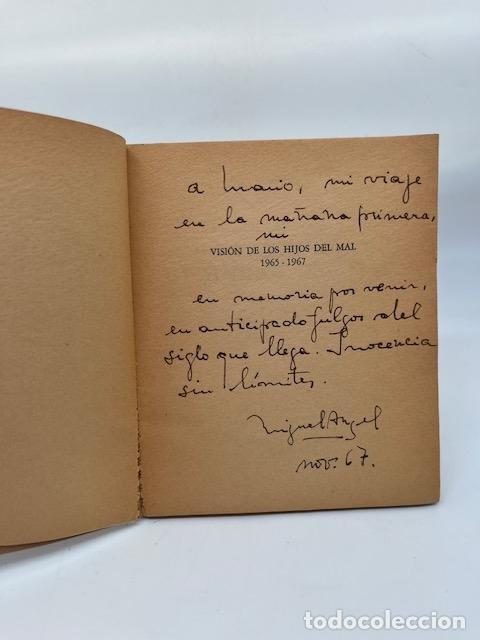 a Mario, mi viaje
en la mañana primera,
mi
VISIÓN DE LOS HIJOS DEL MAL
1965 - 1967
en memoria por venir,
en anticipado fulgor del
siglo que llega. Inocencia
sin límites.
Miguel Angel
nov. 67.
todocoleccion